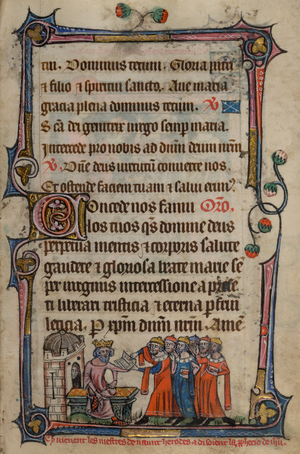 tui. Dominus tecum. Gloria pat̄i
⁊ filio ⁊ spiritui sancto. Aue maria
gracia plena dominus tecum. ℣
S c̄a dei genitrix uirgo semꝑ maria.
Intercede pro nobis ad dn̄m deum nr̄m.
℣. Dn̄e deus uirtutum conuerte nos.
Et ostende faciem tuam ⁊ salui erimꝰ.
Concede nos famu Or̄o.
los tuos qs̄ domine deus
perpetua mentis ⁊ corporis salute
gaudere ⁊ gloriosa beate marie se
per uirginis intercessione a prese
ti liberari tristicia ⁊ eterna ꝑfrui
leticia. P xp̄m dn̄m nr̄m. Amē
Chi uienent les mestres herodes